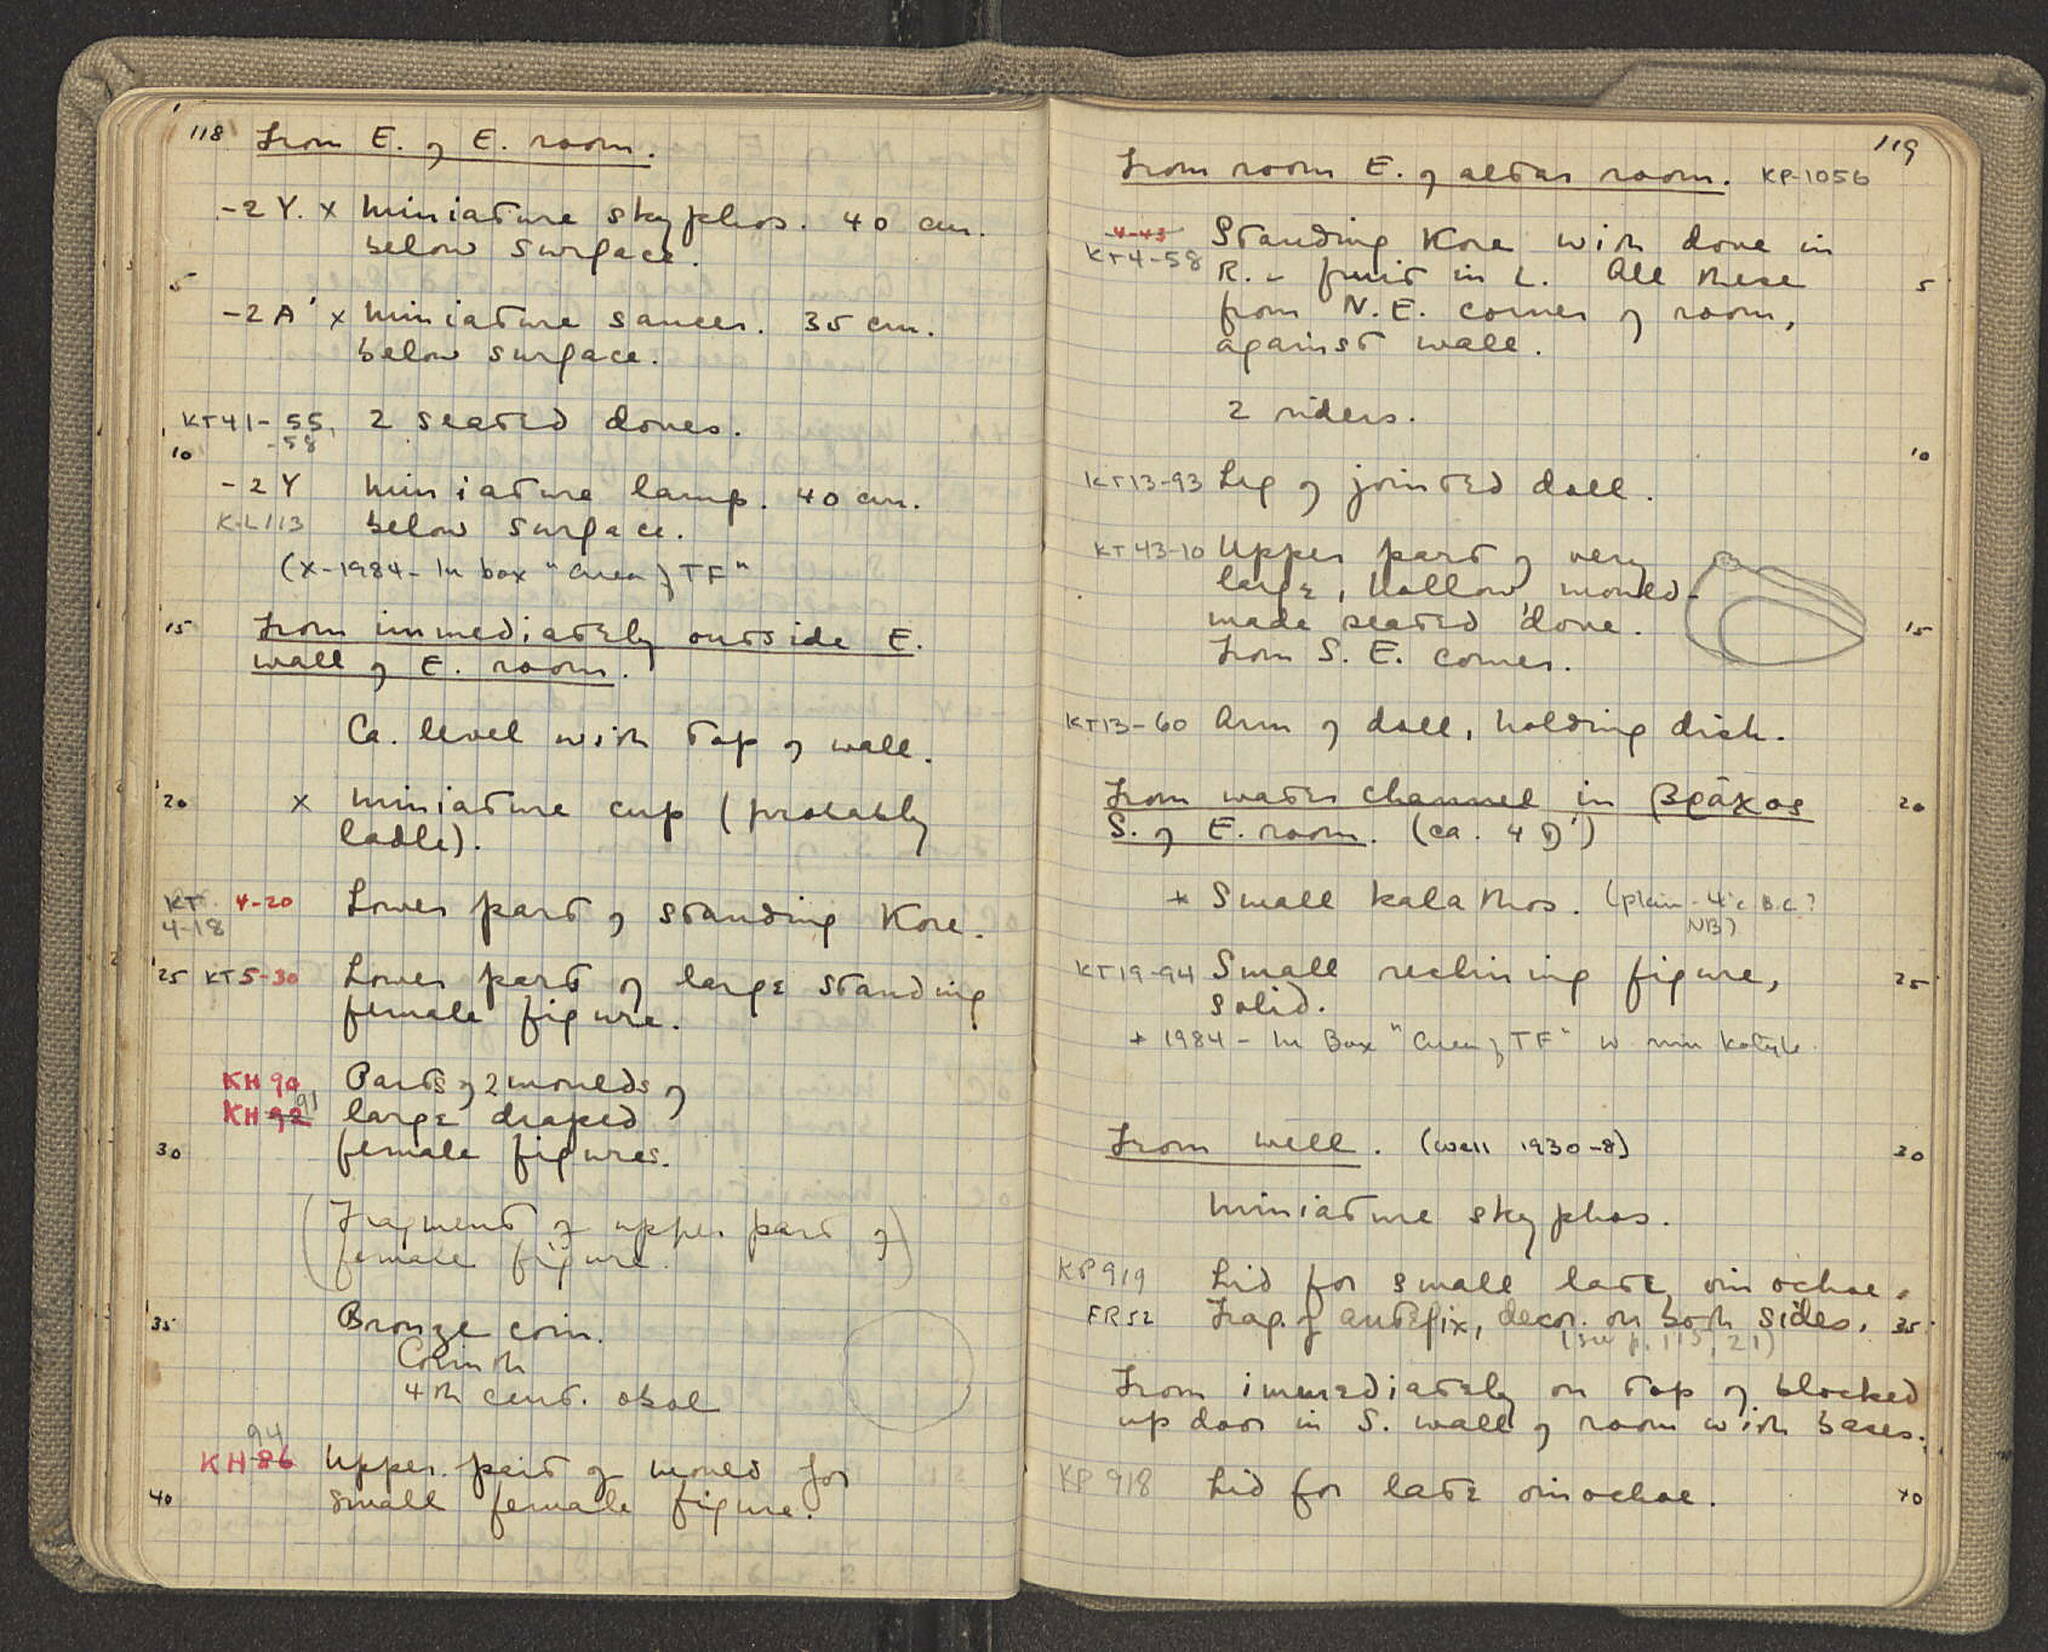 118 From E. of E. room.
-2 Y. x Miniature skyphos. 40 cm.
below surface.
5
-2 A' x Miniature saucer. 35 cm.
below surface.
KT41-55, 2 seated doves.
-58
10
-2 Y Miniature lamp. 40 cm.
KL113 below surface.
(x-1984- In box "Area of TF"
15 From immediately outside E.
wall of E. room.
Ca. level with top of wall.
20 x Miniature cup (probably
ladle).
KT 4-20 Lower part of standing Kore.
4-18
25 KT5-30 Lower part of large standing
female figure.
KH 90 Parts of 2 moulds of
KH 92 91 large draped
30 female figures.
(Fragment of upper part of)
female figure.
35 Bronze coin.
Corinth
4th cent. obol
94
KH 86 Upper part of mould for
40 small female figure.
119
From room E. of altar room. KP-1056
4-43 Standing Kore with dove in
KT4-58 R. - fruit in L. All these 5
from N.E. corner of room,
against wall.
2 riders.
10
KT13-93 Leg of jointed doll.
KT43-10 Upper part of very
large, hollow, mould-
made seated dove. 15
From S. E. corner.
KT13-60 Arm of doll, holding disk.
From water channel in βράχος 20
S. of E. room. (ca. 4 D')
* Small kalathos. (plain - 4th c B.C.?
NB)
KT19-94 Small reclining figure, 25
solid.
* 1984 - In Box "Area of TF" w min kotyle.
From well. (well 1930-8) 30
Miniature skyphos.
KP919 Lid for small late oinochoe.
FR52 Frag. of antefix, decor. on both sides. 35
(see p. 115, 21)
From immediately on top of blocked
up door in S. wall of room with bases.
KP 918 Lid for late oinochoe. 40